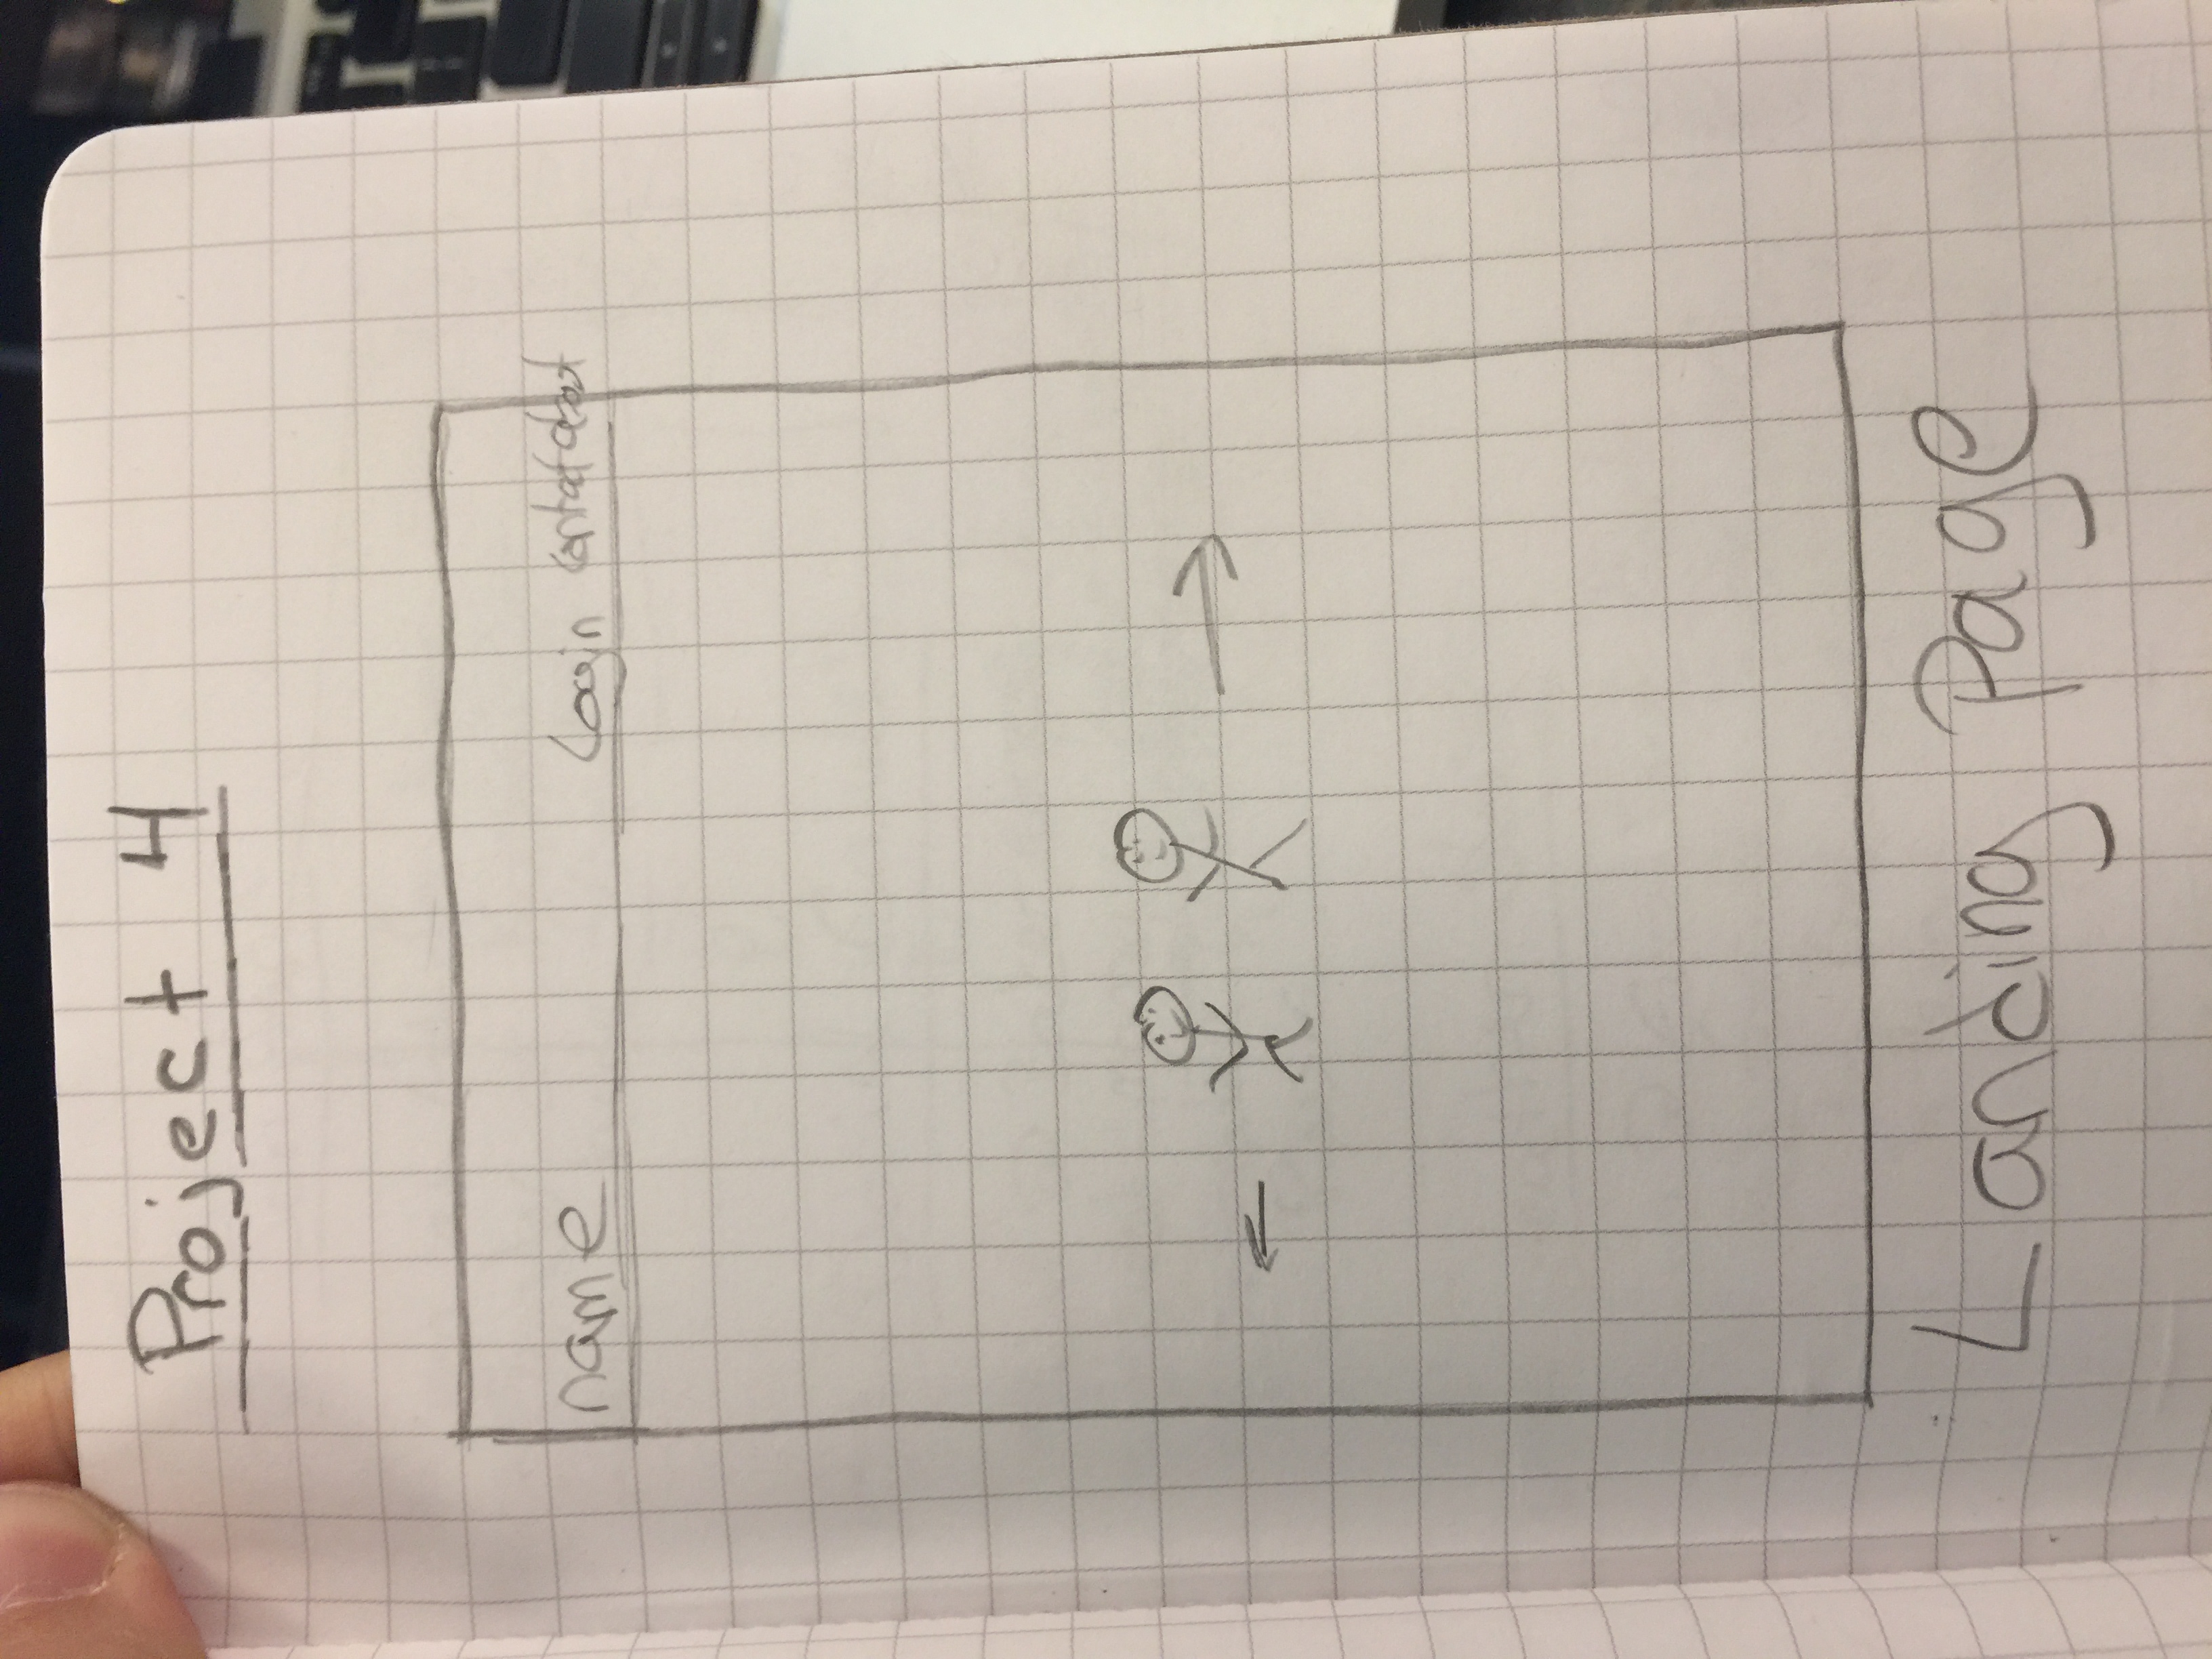 Project 4
name Login contact about
Landing Page